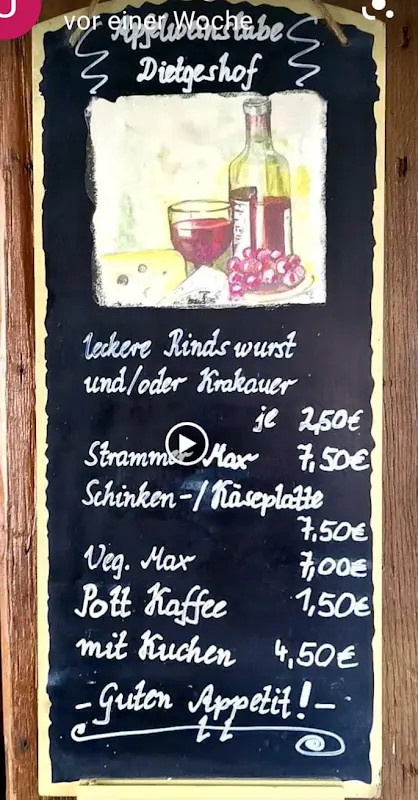 vor einer Woche
Apfelweinstube
Dietgeshof
leckere Rindswurst
und/oder Krakauer
je 2,50€
Strammer Max 7,50€
Schinken-/Käseplatte
7,50€
Veg. Max 7,00€
Pott Kaffee 1,50€
mit Kuchen 4,50€
-Guten Appetit!-